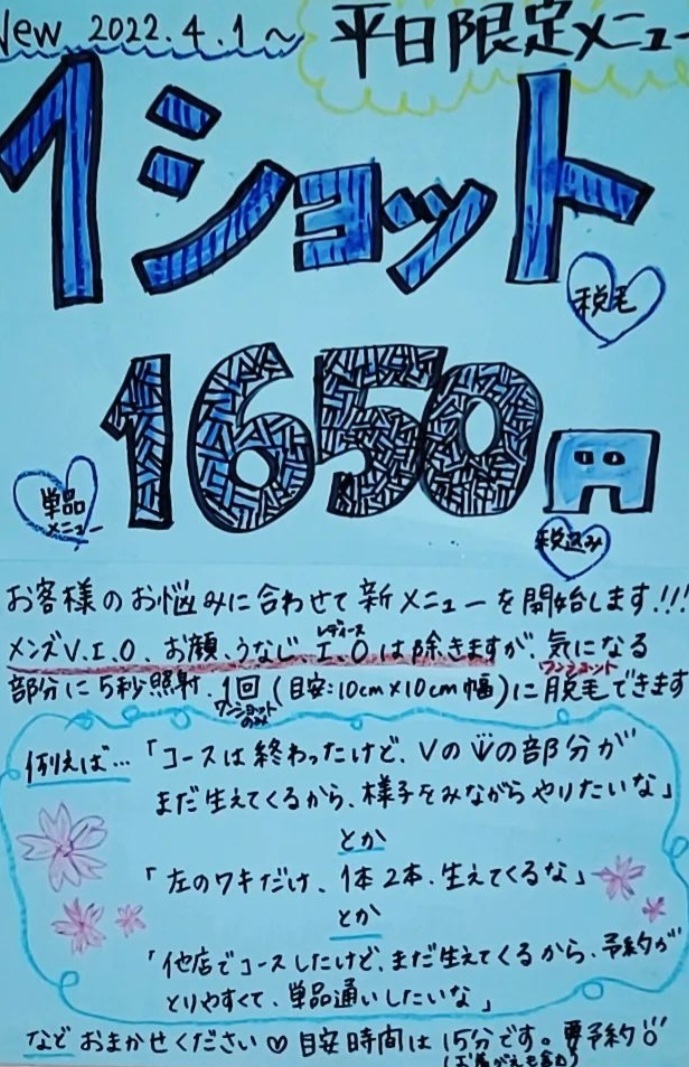 New 2022.4.1〜 平日限定メニュー
1ショット
脱毛
1650円
単品
メニュー
税込み
お客様のお悩みに合わせて新メニューを開始します!!!
レディース
メンズV.I.O、お顔、うなじ、I、Oは除きますが、気になる
ワンショット
部分に5秒照射、1回(目安:10cm×10cm幅)に脱毛できます
ワンショット
のみ
例えば…「コースは終わったけど、Vの の部分が
まだ生えてくるから、様子をみながらやりたいな」
とか
「左のワキだけ、1本2本、生えてくるな」
とか
「他店でコースしたけど、まだ生えてくるから、予約が
とりやすくて、単品通いしたいな」
などおまかせください♡目安時間は15分です。要予約
(お着がえも含む)